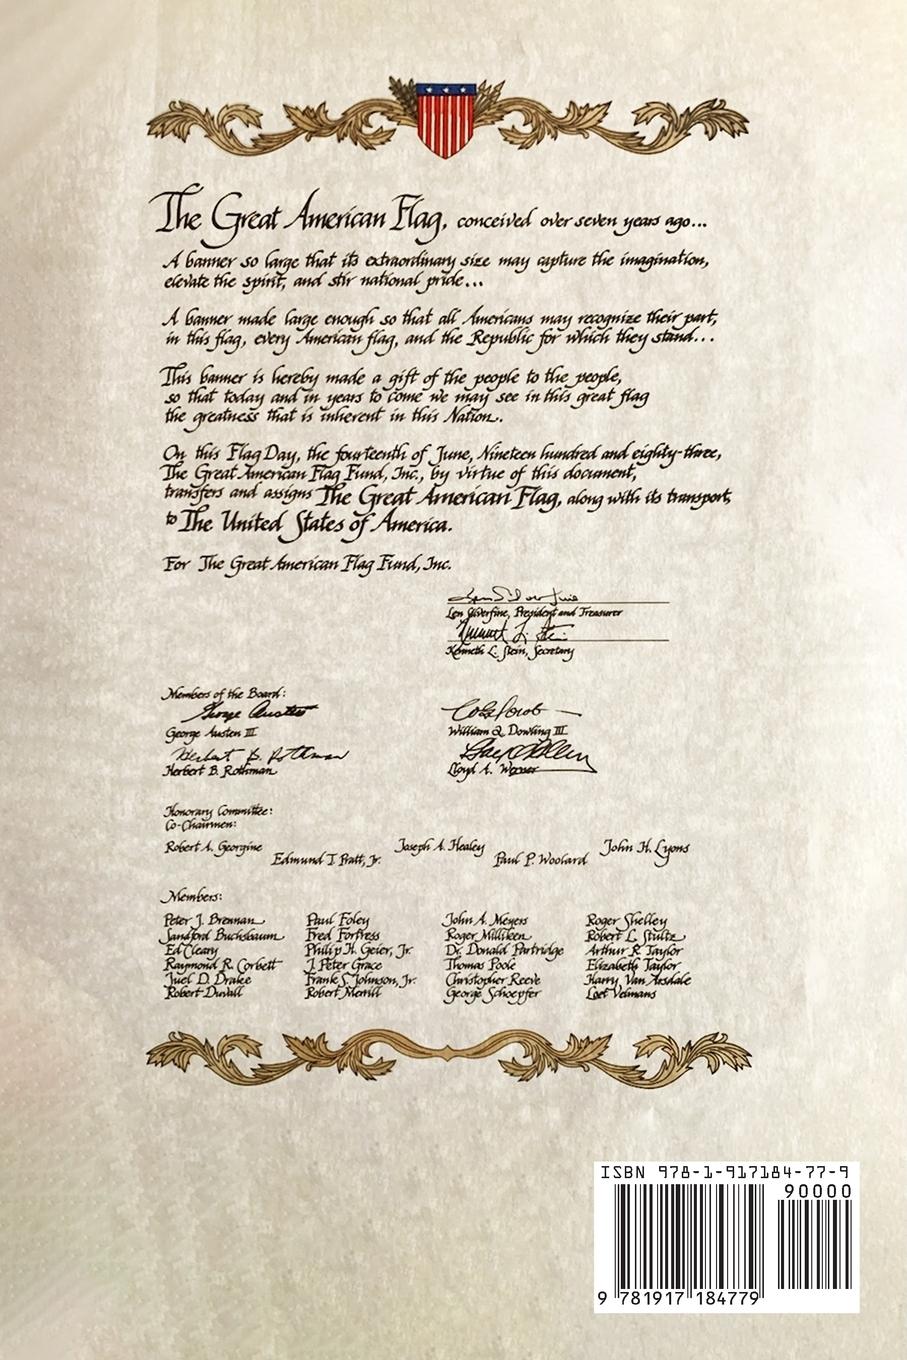 The Great American Flag, conceived over seven years ago...
A banner so large that its extraordinary size may capture the imagination,
elevate the spirit, and stir national pride...
A banner made large enough so that all Americans may recognize their part,
in this flag, every American flag, and the Republic for which they stand...
This banner is hereby made a gift of the people to the people,
so that today and in years to come we may see in this great flag
the greatness that is inherent in this Nation.
On this Flag Day, the fourteenth of June, Nineteen hundred and eighty-three,
The Great American Flag Fund, Inc., by virtue of this document,
transfers and assigns The Great American Flag, along with its transport,
to The United States of America.
For The Great American Flag Fund, Inc.
Len Silverfine, President and Treasurer
Kenneth L. Stein, Secretary
Members of the Board:
George Austen III
William Q. Dowling III
Herbert B. Rothman
Herbert B. Rothman
Lloyd A. Werner
Honorary Committee:
Co-Chairmen:
Robert A. Georgine
Edmund T. Pratt, Jr.
Joseph A. Healey
Paul P. Woolard
John H. Lyons
Members:
Peter J. Brennan
Sandford Buchsbaum
Ed Cleary
Raymond R. Corbett
Juel D. Drake
Robert Duvall
Paul Foley
Fred Fortress
Philip H. Geier, Jr.
J. Peter Grace
Frank S. Johnson, Jr.
Robert Merrill
John A. Meyers
Roger Milliken
Dr. Donald Partridge
Thomas Poole
Christopher Reeve
George Schoepfer
Roger Shelley
Robert L. Stultz
Arthur R. Taylor
Elizabeth Taylor
Harry Van Arsdale
Loet Velmans
ISBN 978-1-917184-77-9
90000
9 781917 184779